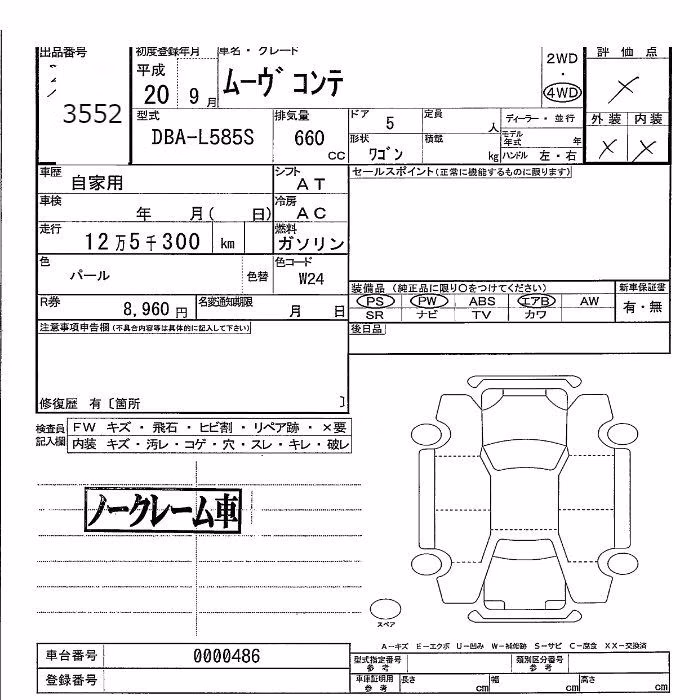 出品番号 初度登録年月 車名・グレード 2WD 評価点
平成 ムーヴ コンテ ・
20 9月 4WD ×
3552 型式 排気量 ドア 5 定員 人 ディーラー・並行 外装 内装
DBA-L585S 660 cc 形状 ワゴン 積載 kg モデル年式 年 × ×
ハンドル 左・右
車歴 自家用 シフト AT セールスポイント(正常に機能するものに限ります)
車検 年 月( 日) 冷房 AC
走行 12万5千300 km 燃料 ガソリン
色 パール 色替 色コード W24
装備品 (純正品に限り○をつけてください) 新車保証書
R券 8,960円 名変通知期限 月 日 PS PW ABS エアB AW 有・無
SR ナビ TV カワ
注意事項申告欄(不具合内容等は具体的に記入して下さい) 後日品
修復歴 有〔箇所 〕
検査員記入欄 FW キズ・飛石・ヒビ割・リペア跡・×要
内装 キズ・汚レ・コゲ・穴・スレ・キレ・破レ
ノークレーム車
スペア
A-キズ E-エクボ U-凹み W-補修跡 S-サビ C-腐食 XX-交換済
車台番号 0000486 型式指定番号 参考 類別区分番号 参考
登録番号 車庫証明用 参考 長さ cm 幅 cm 高さ cm